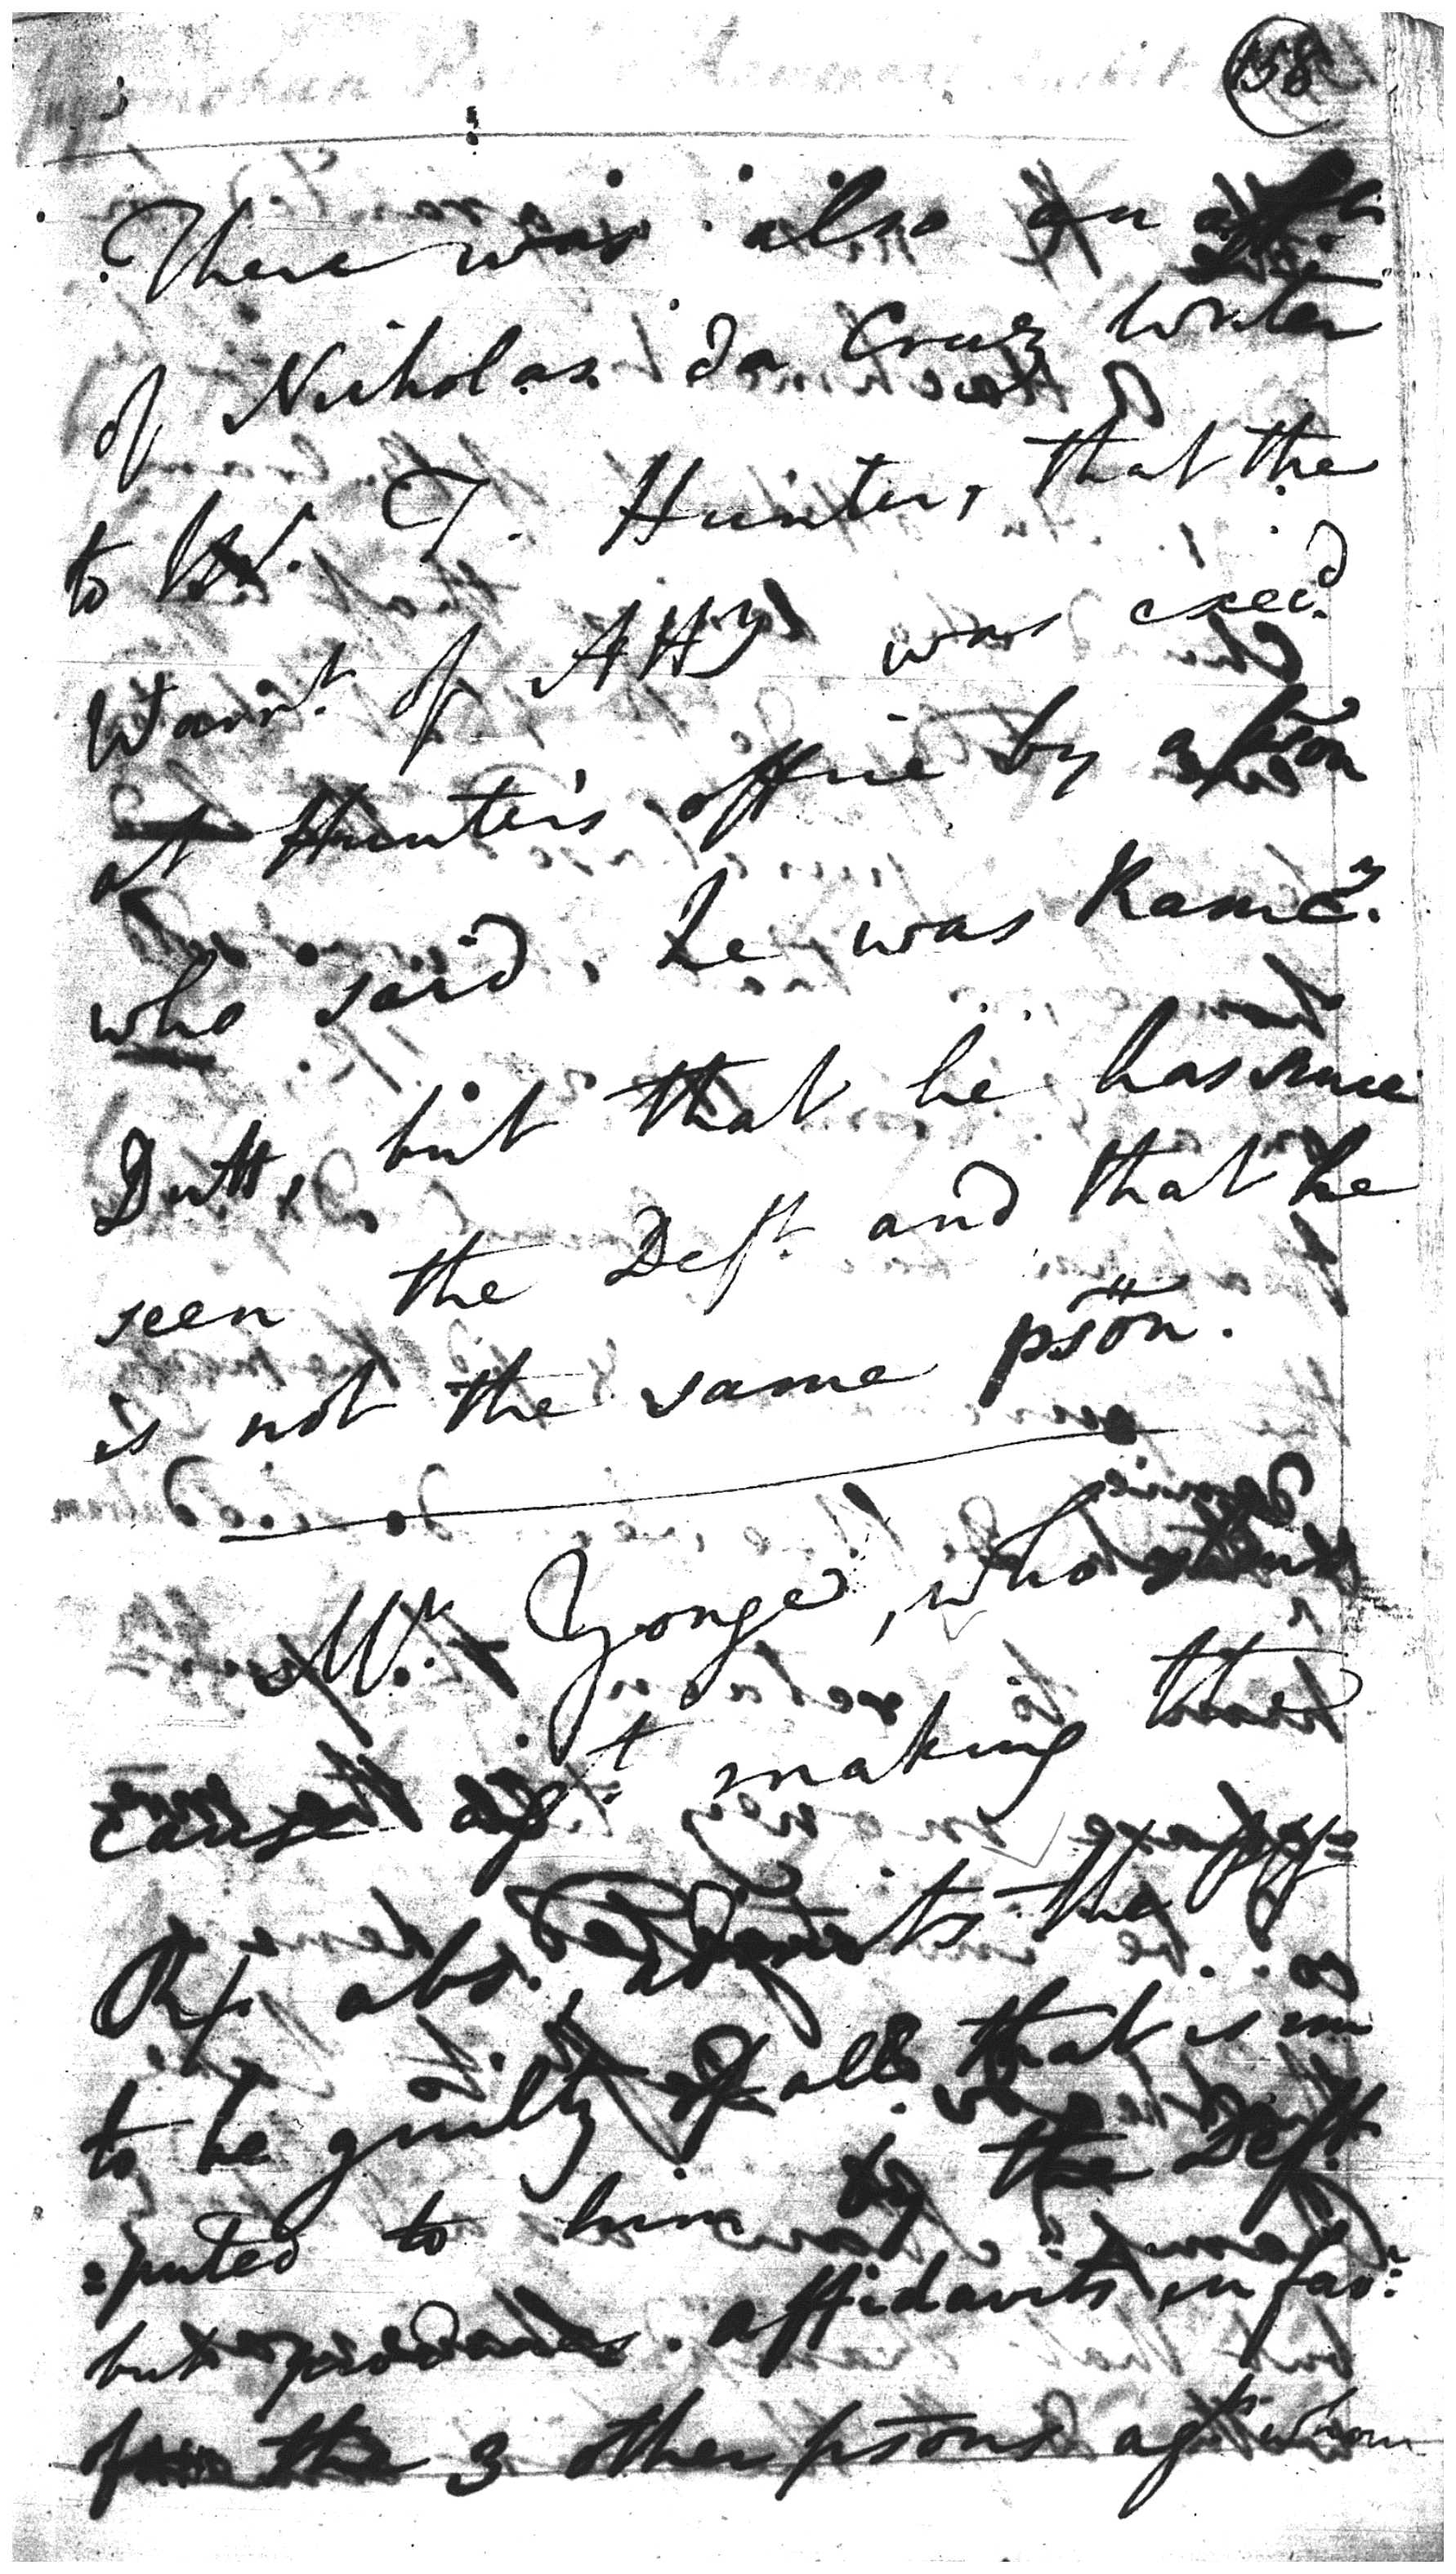 158
There was also an afft.
of Nicholas da Cruz writer
to W. T. Hunter, that the
Warrt. of Atty was execd.
at Hunter's office by a pson
who said he was Ramcy.
Dutt, but that he has since
seen the Deft. and that he
is not the same pson.
Mr Yonge, who shews
cause agt. making the
Rx abs. admits the
to be guilty of all that is im
=puted to him by the Deft.
but produces affidavits in favr.
of the 3 other psons agt. whom